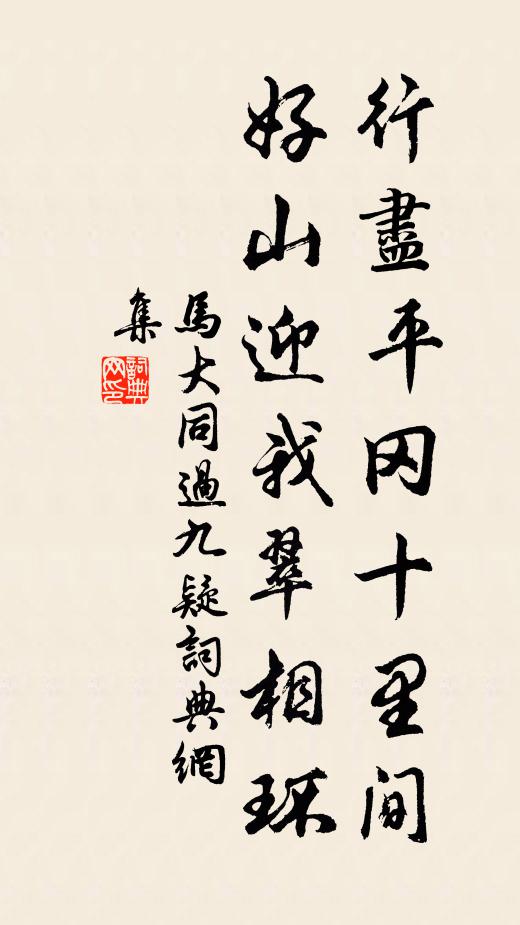 行盡平冈十里间
好山迎我翠相环
馬大同過九疑詞典網
集
詞典
网印